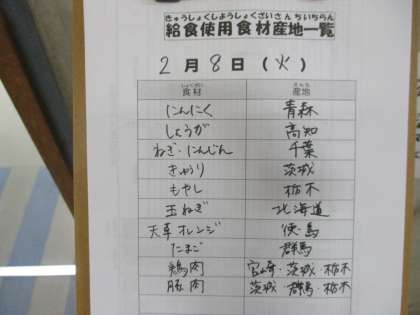 きゅうしょくしようしょくざいさんちいちらん
給食使用食材産地一覧
2月8日(火)
しょくざい さんち
食材 産地
にんにく 青森
しょうが 高知
ねぎ・にんじん 千葉
きゅうり 茨城
もやし 栃木
玉ねぎ 北海道
天草オレンジ 島
たまご 群馬
鶏肉 宮崎・茨城・栃木
豚肉 茨城・群馬・栃木